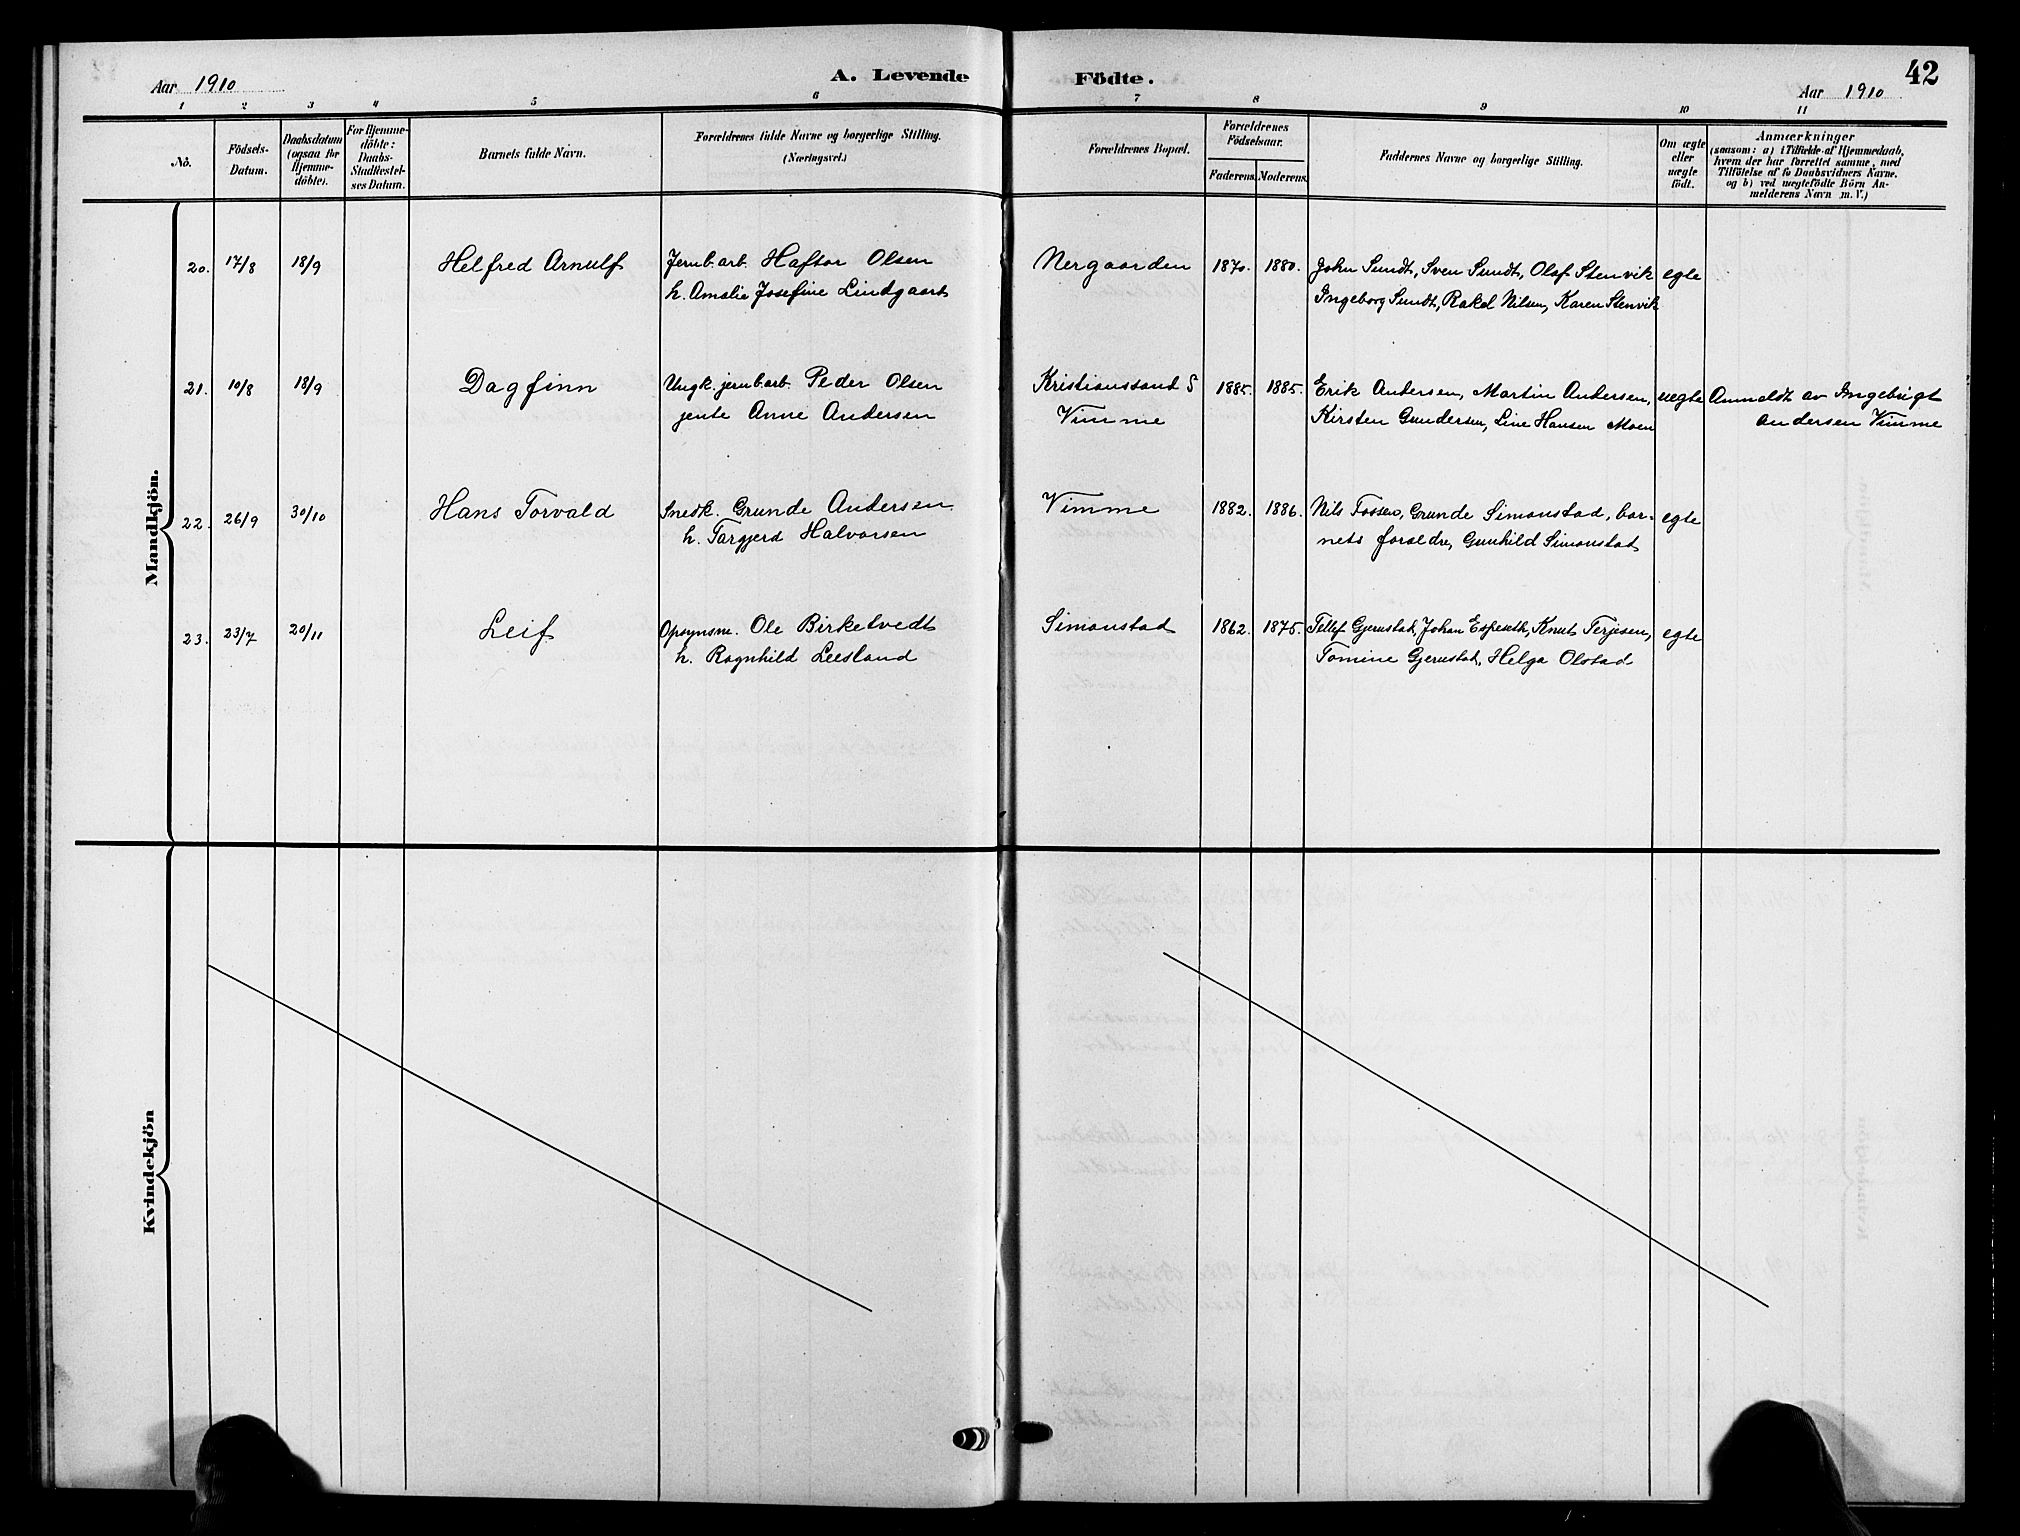 Aar 1910
A. Levende Födte.
42
Aar 1910
1 2 3 4 5 6 7 8 9 10 11
No.
Födsels-Datum.
Daabsdatum (ogsaa for Hjemmedöbte).
For Hjemmedöbte: Daabs-Stadfæstelses Datum.
Barnets fulde Navn.
Forældrenes fulde Navne og borgerlige Stilling. (Næringsvei.)
Forældrenes Bopæl.
Forældrenes Födselsaar.
Faderens. Moderens.
Faddernes Navne og borgerlige Stilling.
Om ægte eller uægte födt.
Anmærkninger
(saasom: a) i Tilfælde af Hjemmedaab,
hvem der har forrettet samme, med
Tilföielse af to Daabsvidners Navne.
og b) ved uægtefödte Börn An-
melderens Navn m. V.)
Mandkjön.
20. 17/8 18/9 Helfred Arnulf Jernb.arb. Haftor Olsen Nergaarden 1870. 1880. John Sundt, Sven Sundt, Olaf Stenvik egte
h. Amalie Josefine Lindgaart Ingeborg Sundt, Rakel Nilsen, Karen Stenvik
21. 10/8 18/9 Dagfinn Ungk. jernb.arb. Peder Olsen Kristianssand S 1885. 1885. Erik Andersen, Martin Andersen, uegte Anmeldt av Ingebrigt
jente Anne Andersen Vimme Kirsten Gundersen, Line Hansen Moen Andersen Vimme
22. 26/9 30/10 Hans Torvald Snedk. Grunde Andersen Vimme 1882. 1886. Nils Fossen, Grunde Simonstad, bar- egte
h. Targjerd Halvorsen nets foreldre, Gunhild Simonstad
23. 23/7 20/11 Leif Opsynsm. Ole Birketvedt Simonstad 1862. 1875. Tellef Gjerustad, Johan Espeseth, Knut Terjesen, egte
h. Ragnhild Leesland Tomine Gjerustad, Helga Olstad
Kvindekjön